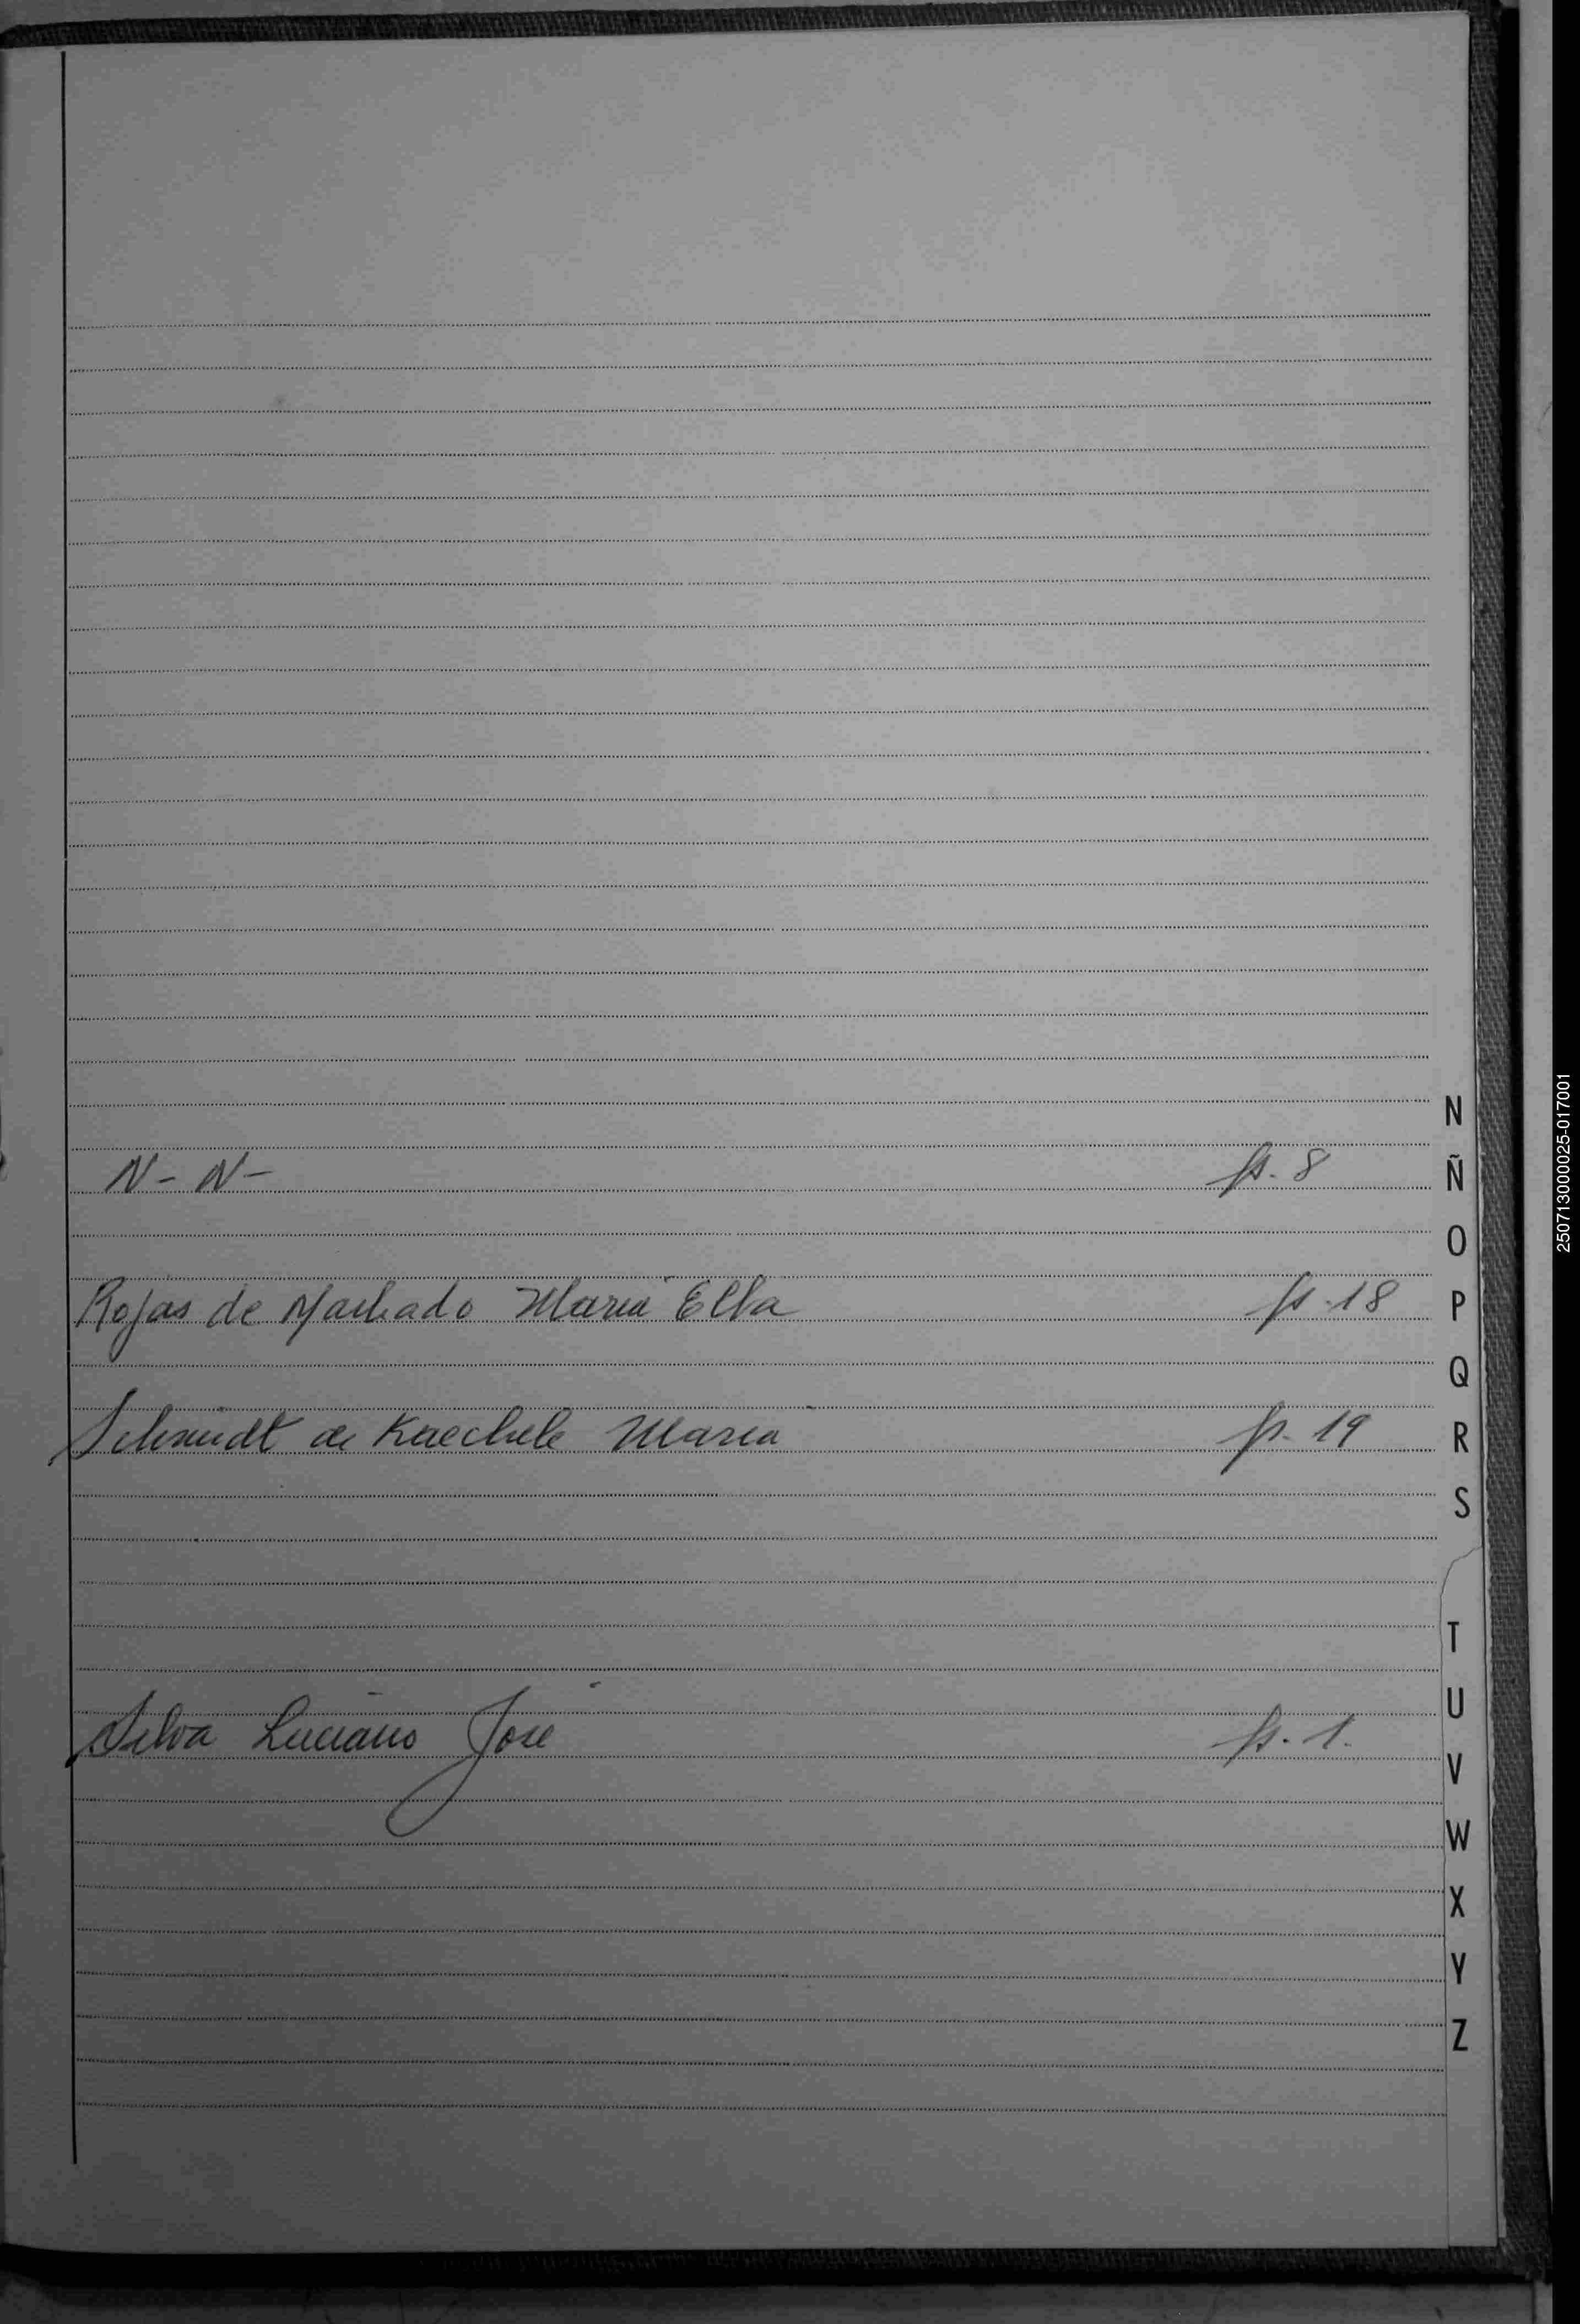 N
N - N - fs. 8
Ñ
O
Rojas de Machado María Elba fs. 18
P
Q
Schmidt de Kaechele María fs. 19
R
S
T
U
Silva Luciano José fs. 1.
V
W
X
Y
Z
250713000025-017001